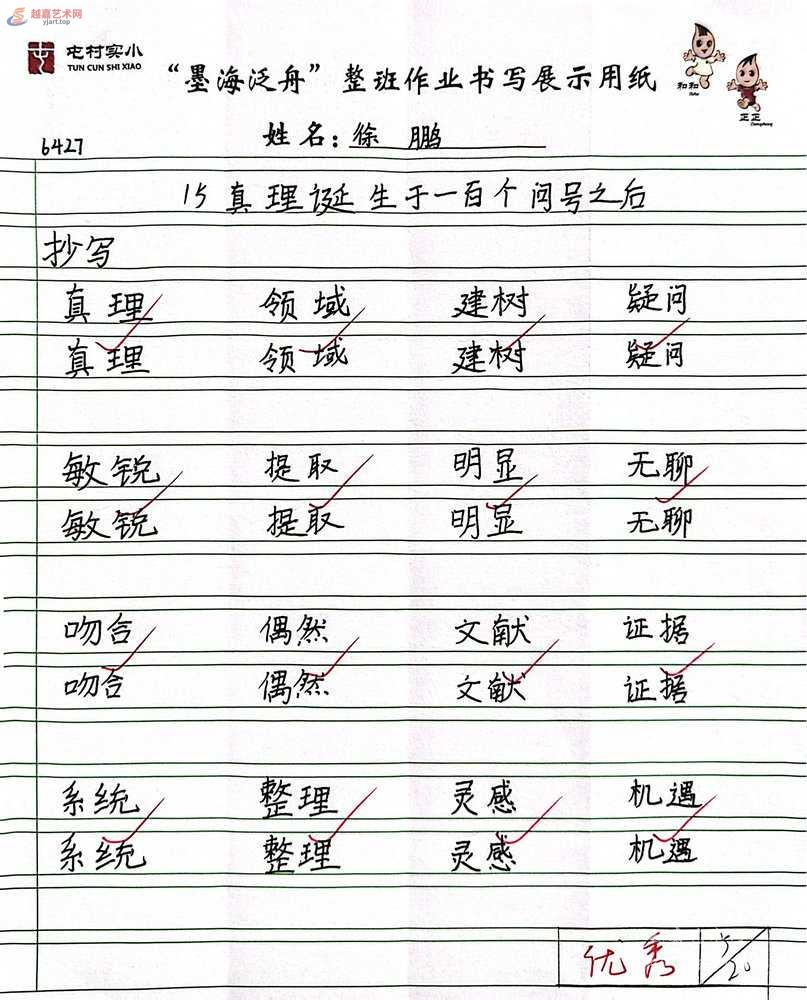 越嘉艺术网
yjart.top
屯村实小
TUN CUN SHI XIAO
“墨海泛舟”整班作业书写展示用纸
和和
Hehe
正正
Zhengzheng
6427
姓名：徐鹏
15 真理诞生于一百个问号之后
抄写
真理 领域 建树 疑问
真理 领域 建树 疑问
敏锐 提取 明显 无聊
敏锐 提取 明显 无聊
吻合 偶然 文献 证据
吻合 偶然 文献 证据
系统 整理 灵感 机遇
系统 整理 灵感 机遇
优秀 5/20